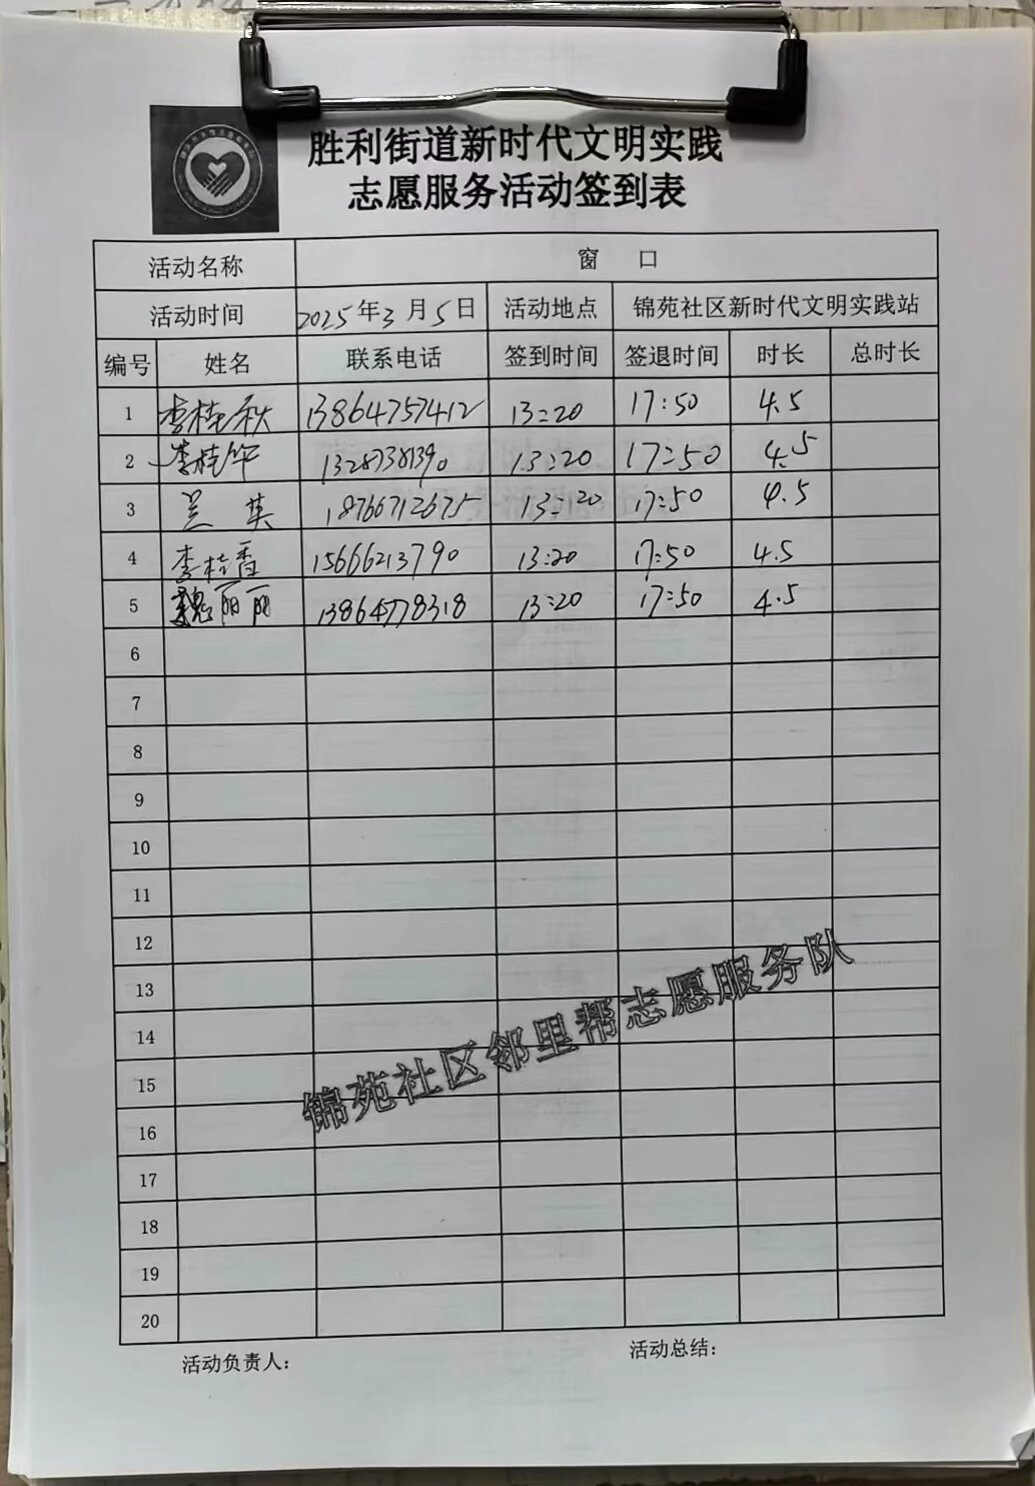 胜利街道新时代文明实践
志愿服务活动签到表
活动名称 窗 口
活动时间 2025年3月5日 活动地点 锦苑社区新时代文明实践站
编号 姓名 联系电话 签到时间 签退时间 时长 总时长
1 李桂秋 13864757412 13:20 17:50 4.5
2 李桂华 13287381390 13:20 17:50 4.5
3 吴英 18766712675 13:20 17:50 4.5
4 李桂香 15666213790 13:20 17:50 4.5
5 魏丽丽 13864778318 13:20 17:50 4.5
6
7
8
9
10
11
12
13
14
15
16
17
18
19
20
锦苑社区邻里帮志愿服务队
活动负责人: 活动总结: